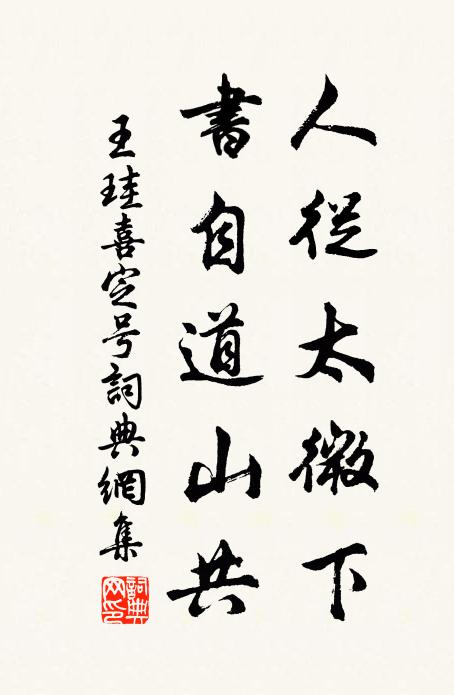 人從太微下
書自道山共
王珪喜定号詞典網集
詞典網印